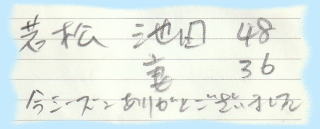 若松 池田 48
36
今シーズンありがとございました